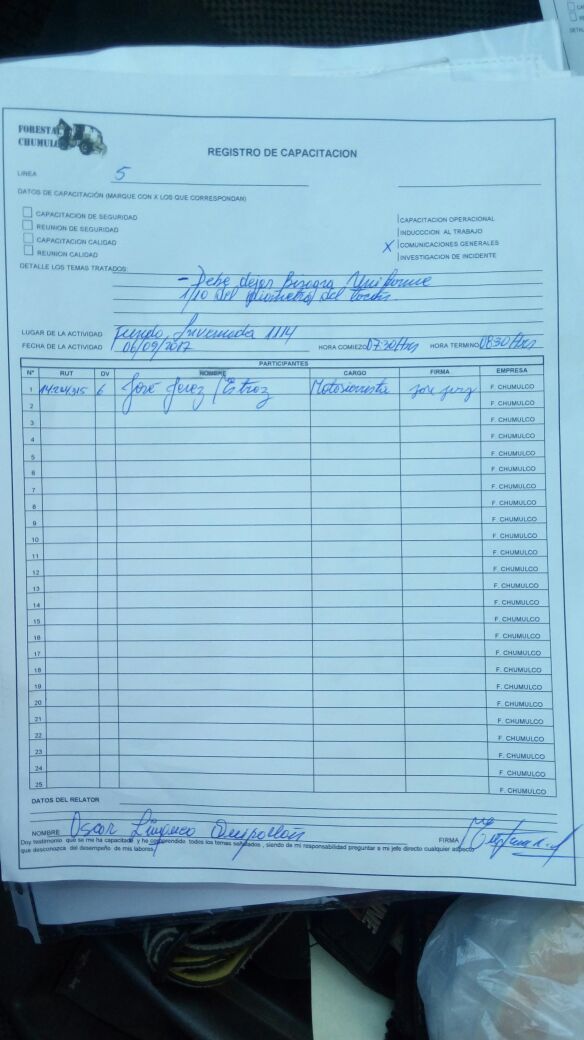 FORESTAL
CHUMULCO
REGISTRO DE CAPACITACION
LINEA 5
DATOS DE CAPACITACIÓN (MARQUE CON X LOS QUE CORRESPONDAN)
CAPACITACION DE SEGURIDAD
REUNION DE SEGURIDAD
CAPACITACION CALIDAD
REUNION CALIDAD
CAPACITACION OPERACIONAL
INDUCCCION AL TRABAJO
X COMUNICACIONES GENERALES
INVESTIGACION DE INCIDENTE
DETALLE LOS TEMAS TRATADOS:
- Debe dejar Bisagra Uniforme
1/10 del diametro del
LUGAR DE LA ACTIVIDAD Fundo, Invernada 1114
FECHA DE LA ACTIVIDAD 06/09/2017 HORA COMIEZO 07:30 Hrs HORA TERMINO 08:30 Hrs
PARTICIPANTES
N° RUT DV NOMBRE CARGO FIRMA EMPRESA
1 14224315 6 José Jerez Motosierrista F. CHUMULCO
2 F. CHUMULCO
3 F. CHUMULCO
4 F. CHUMULCO
5 F. CHUMULCO
6 F. CHUMULCO
7 F. CHUMULCO
8 F. CHUMULCO
9 F. CHUMULCO
10 F. CHUMULCO
11 F. CHUMULCO
12 F. CHUMULCO
13 F. CHUMULCO
14 F. CHUMULCO
15 F. CHUMULCO
16 F. CHUMULCO
17 F. CHUMULCO
18 F. CHUMULCO
19 F. CHUMULCO
20 F. CHUMULCO
21 F. CHUMULCO
22 F. CHUMULCO
23 F. CHUMULCO
24 F. CHUMULCO
25 F. CHUMULCO
DATOS DEL RELATOR
NOMBRE Oscar FIRMA
Doy testimonio que se me ha capacitado y he comprendido todos los temas señalados, siendo de mi responsabilidad preguntar a mi jefe directo cualquier aspecto
que desconozca del desempeño de mis labores